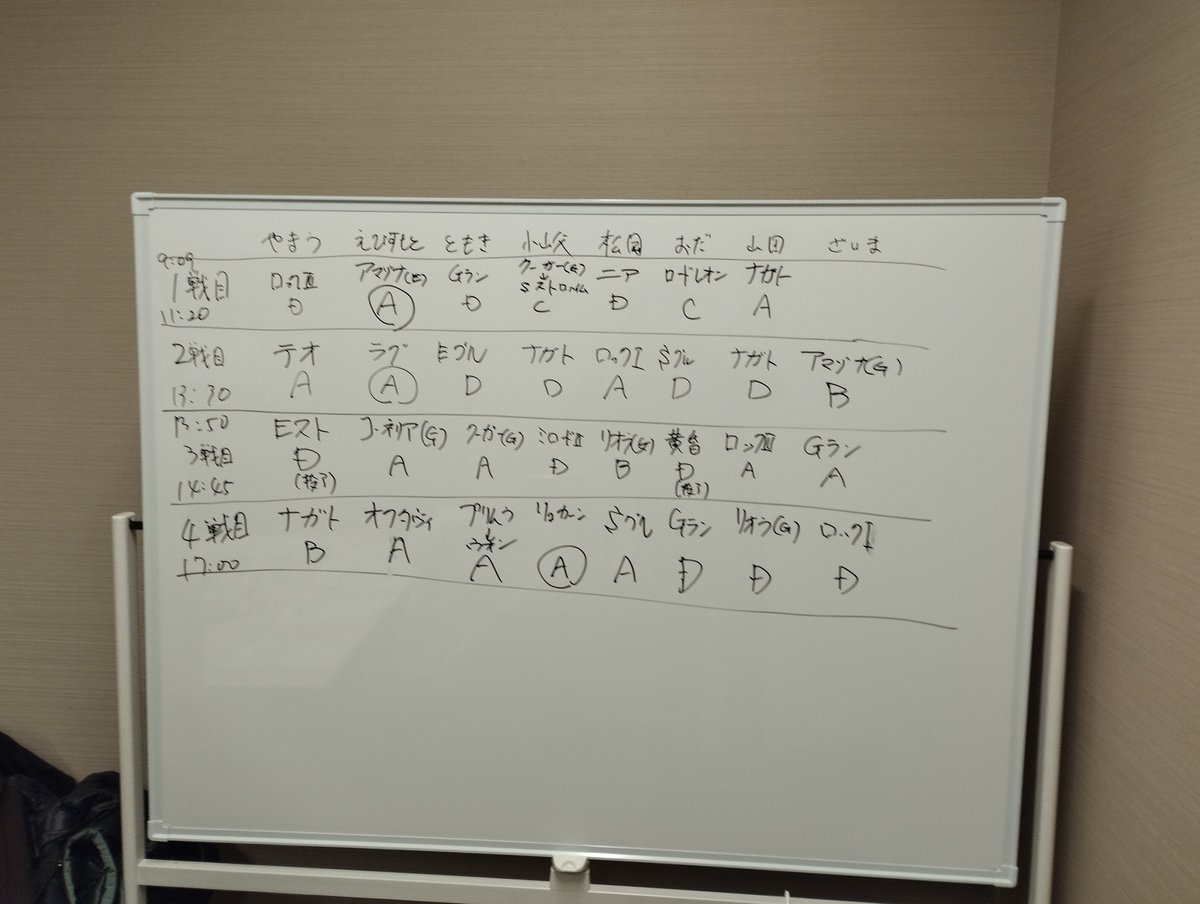 やまう えびすしと ともき 小山父 松岡 おだ 山田 ざいま
9:09
1戦目 ロックⅢ アマゾナ(E) Gラン クーガー(G) ニア ロードレオン ナガト
↓
Sストロング
11:20 D A D C D C A
2戦目 テオ ラグ Eグル ナガト ロックI Sグル ナガト アマゾナ(G)
13:30 A A D D A D D B
13:50
3戦目 Eスト コーネリア(G) クーガー(G) ミロードⅡ リオネ(G) 黄昏 ロックⅢ Gラン
D A A D B D A A
14:45 (投了) (投了)
4戦目 ナガト オクタヴィ プリムラ リュカーン Sグル Gラン リオネ(G) ロックI
↓
ウォン
17:00 B A A A A D D D